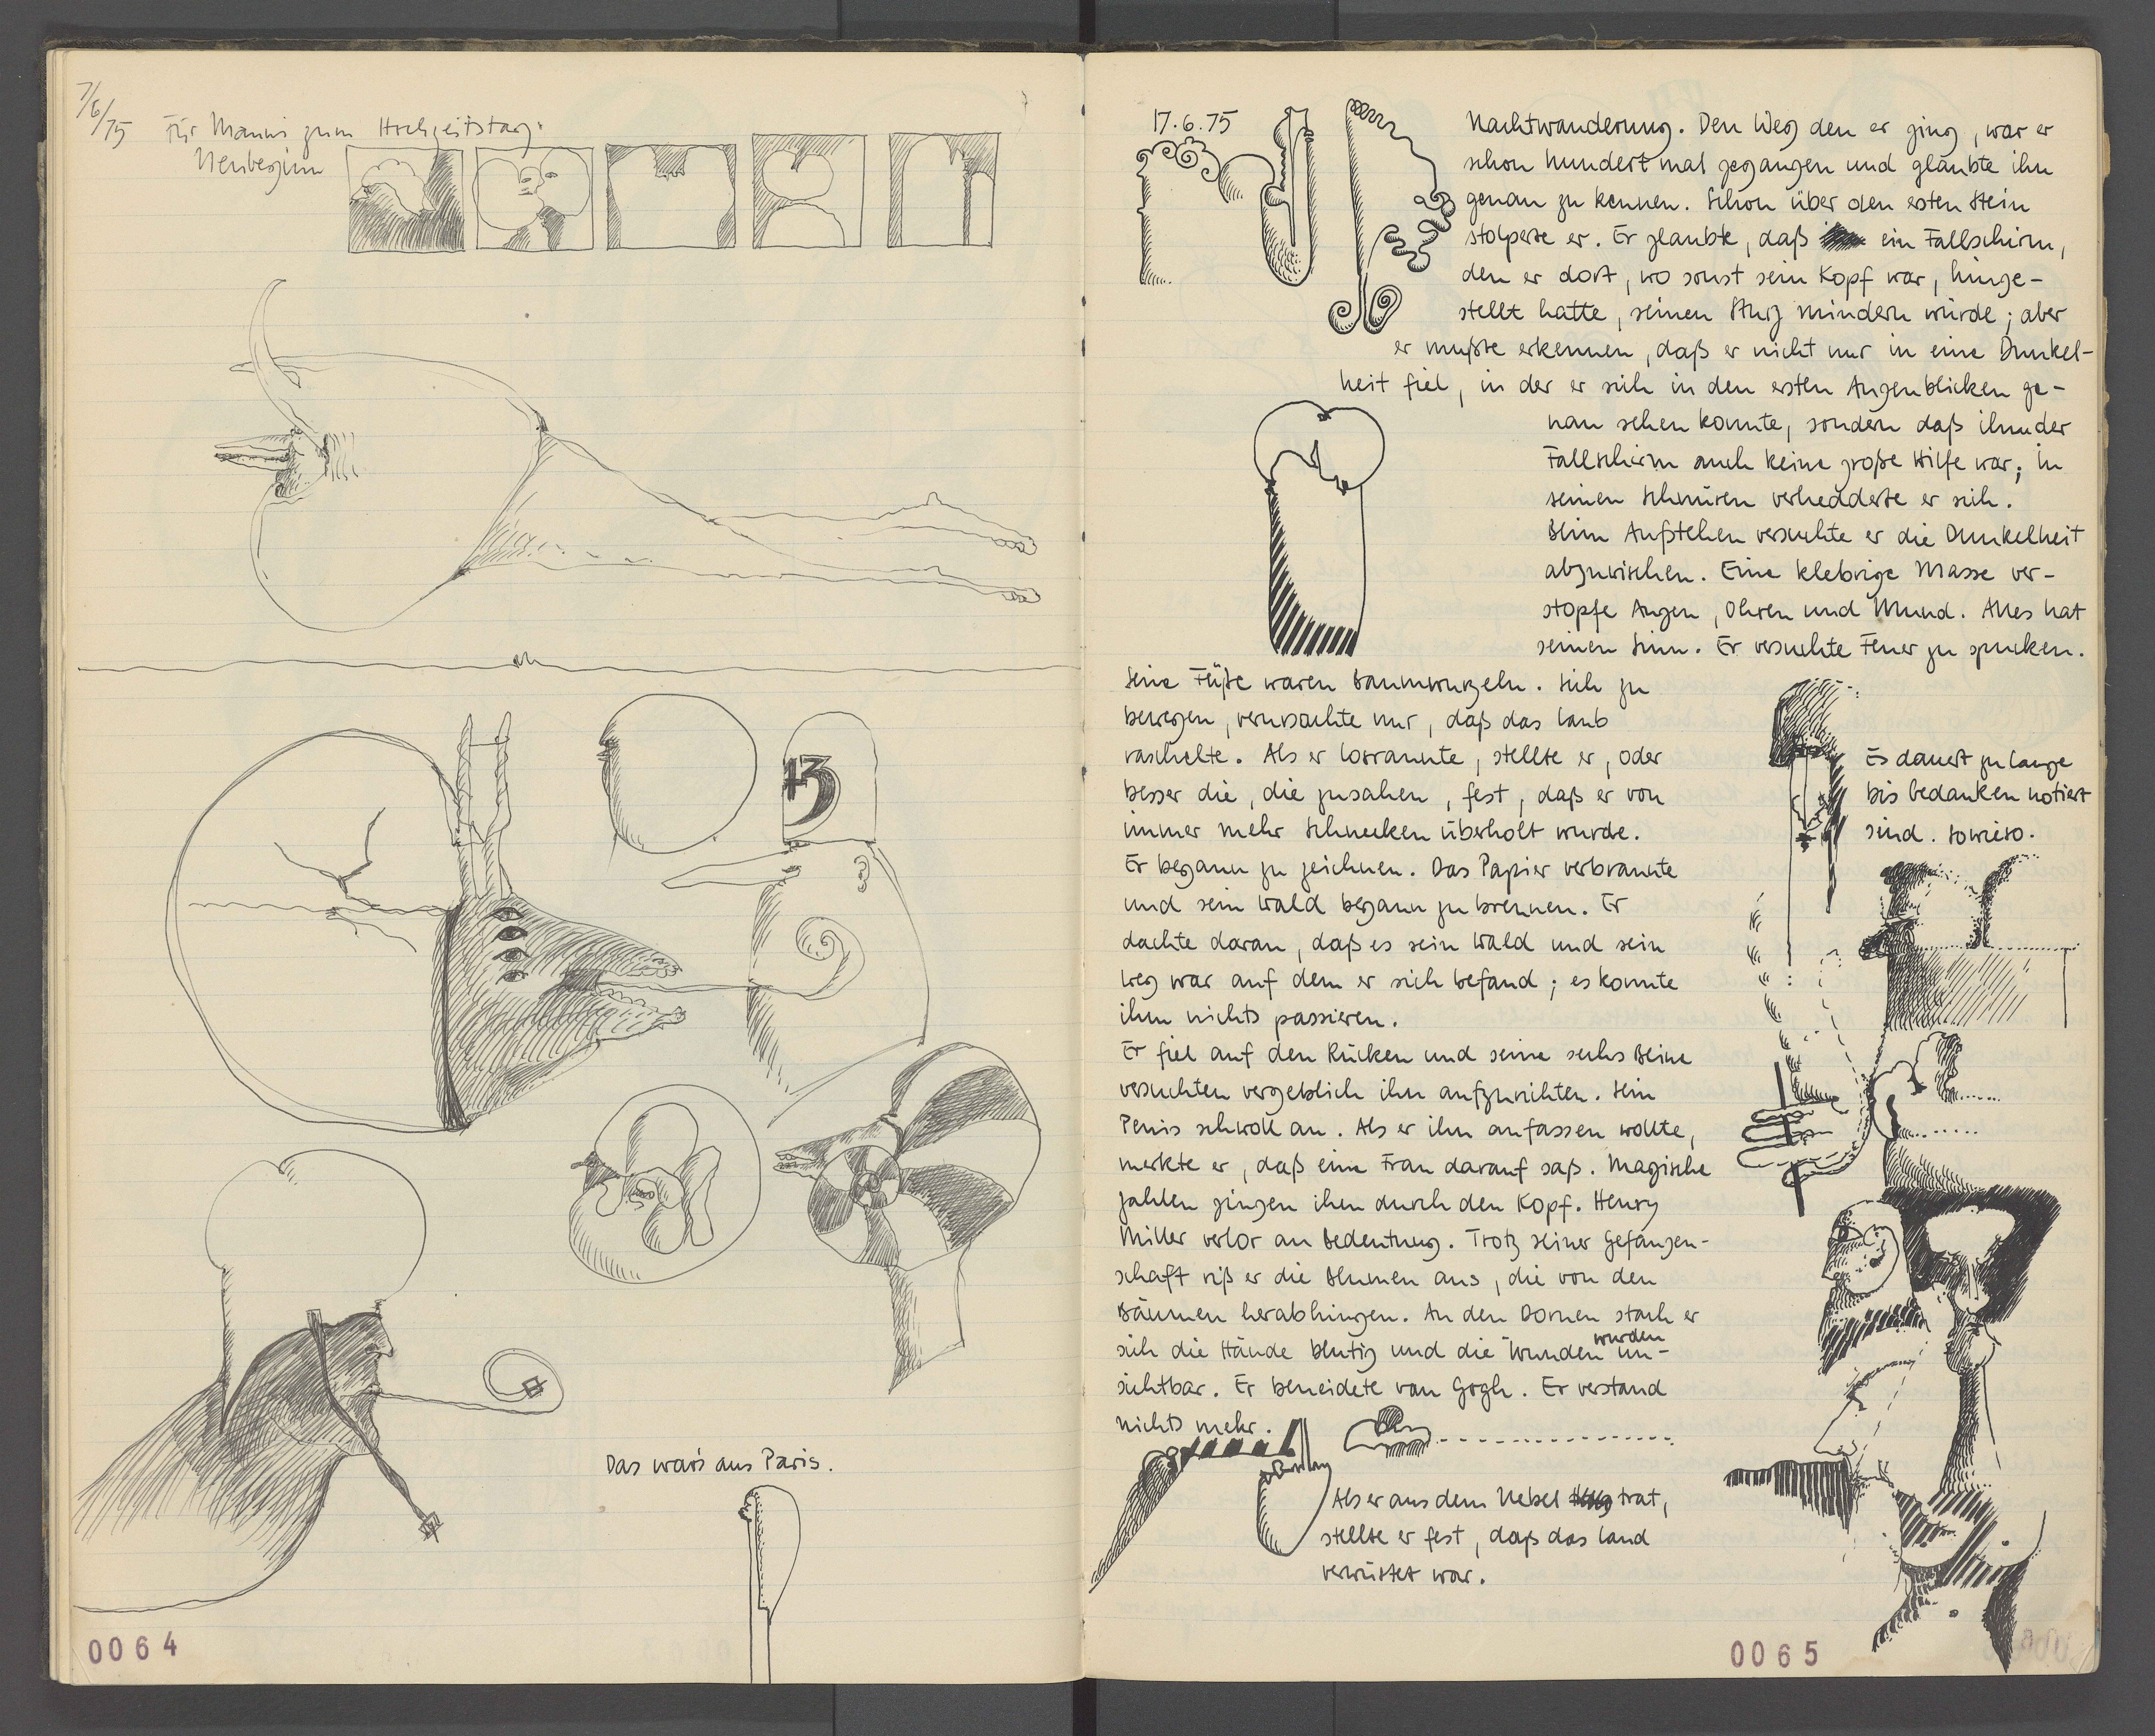 7/6/75
Für Mannis zum Hochzeitstag:
Neubeginn
13
Das war's aus Paris.
0064
17.6.75
Nachtwanderung. Den Weg den er ging, war er
schon hundert mal gegangen und glaubte ihn
genau zu kennen. Schon über den ersten Stein
stolperte er. Er glaubte, daß ein Fallschirm,
den er dort, wo sonst sein Kopf war, hinge-
stellt hatte, seinen Sturz mindern würde; aber
er mußte erkennen, daß er nicht nur in eine Dunkel-
heit fiel, in der er sich in den ersten Augenblicken ge-
nau sehen konnte, sondern daß ihm der
Fallschirm auch keine große Hilfe war; in
seinen Schnüren verhedderte er sich.
Beim Aufstehen versuchte er die Dunkelheit
abzuwischen. Eine klebrige Masse ver-
stopfe Augen, Ohren und Mund. Alles hat
seinen Sinn. Er versuchte Feuer zu spucken.
Seine Füße waren Baumwurzeln. Sich zu
bewegen, verursachte nur, daß das Laub
raschelte. Als er losrannte, stellte er, oder
besser die, die zusahen, fest, daß er von
immer mehr Schnecken überholt wurde.
Er begann zu zeichnen. Das Papier verbrannte
und sein Wald begann zu brennen. Er
dachte daran, daß es sein Wald und sein
Weg war auf dem er sich befand; es konnte
ihm nichts passieren.
Er fiel auf den Rücken und seine sechs Beine
versuchten vergeblich ihn aufzurichten. Sein
Penis schwoll an. Als er ihn anfassen wollte,
merkte er, daß eine Frau darauf saß. Magische
Zahlen gingen ihm durch den Kopf. Henry
Miller verlor an Bedeutung. Trotz seiner Gefangen-
schaft riß er die Blumen aus, die von den
Bäumen herabhingen. An den Dornen stach er
sich die Hände blutig und die Wunden wurden un-
sichtbar. Er beneidete van Gogh. Er verstand
nichts mehr.
Als er aus dem Nebel trat,
stellte er fest, daß das Land
verwüstet war.
Es dauert zu lange
bis Gedanken notiert
sind. Sowieso.
0065